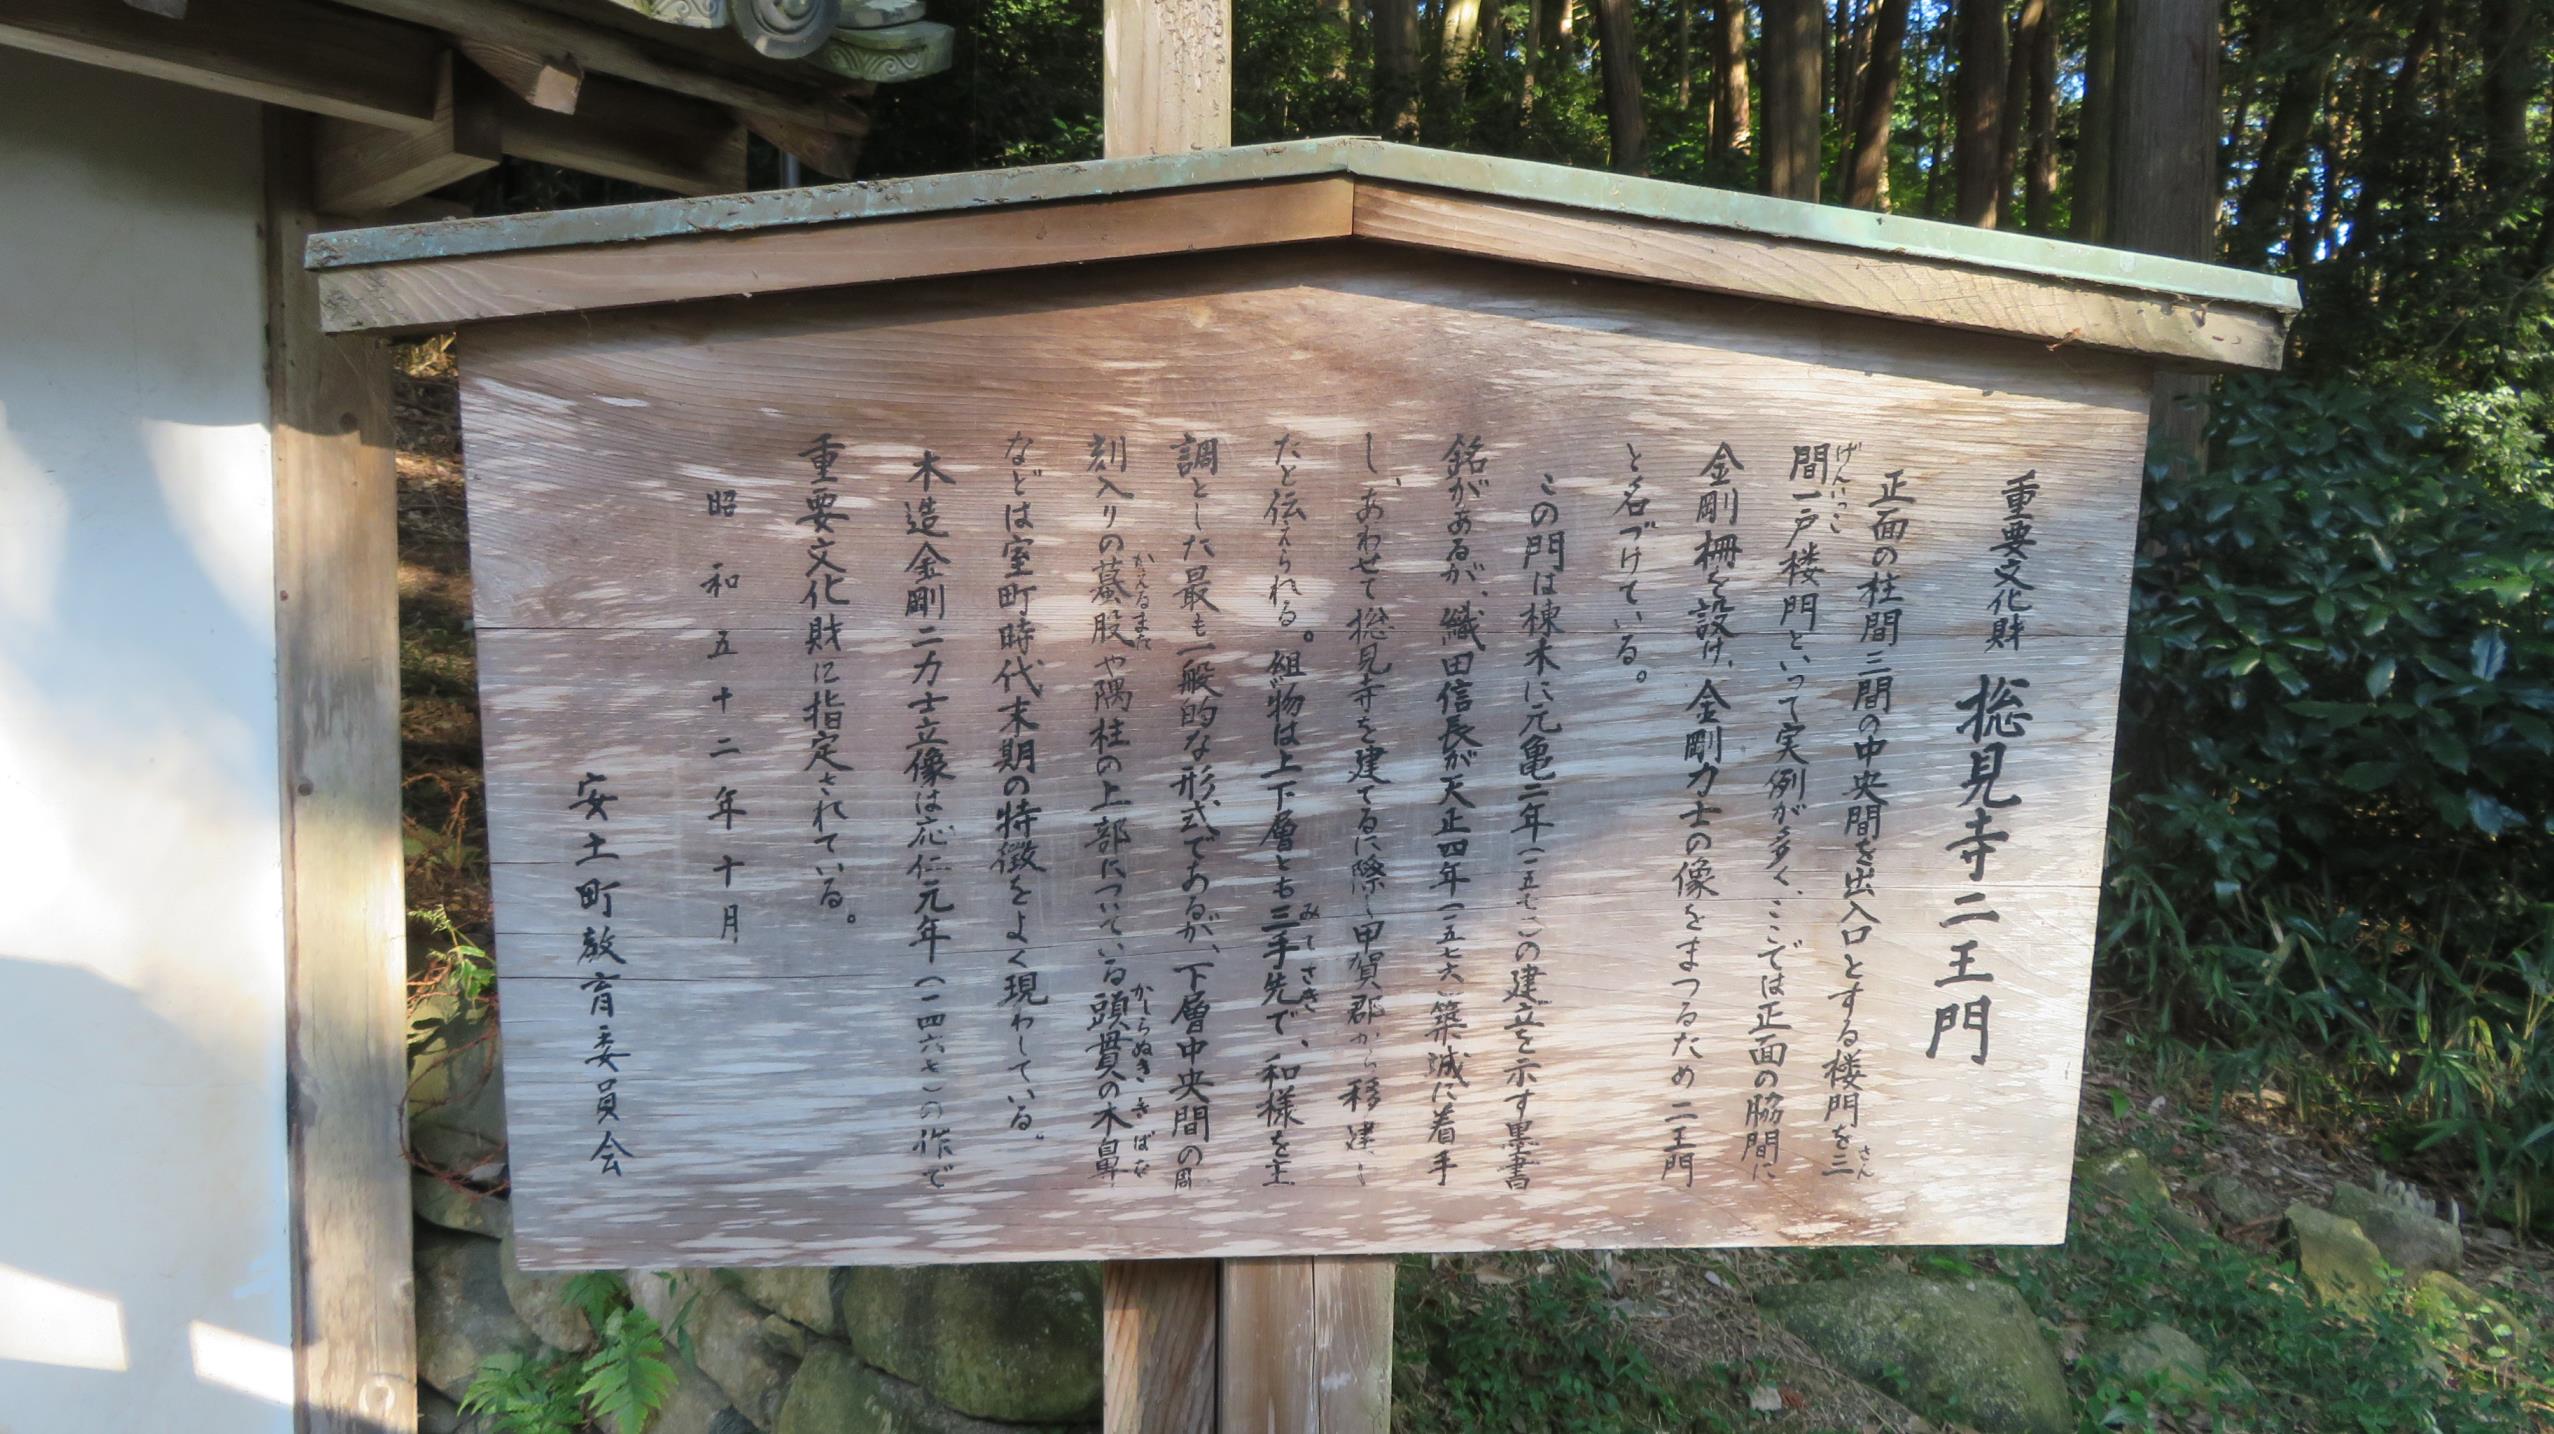 重要文化財 摠見寺二王門
正面の柱間三間の中央間を出入口とする楼門を三
間一戸楼門といって実例が多く、ここでは正面の脇間に
金剛柵を設け、金剛力士の像をまつるため二王門
と名づけている。
この門は棟木に元亀二年(一五七一)の建立を示す墨書
銘があるが、織田信長が天正四年(一五七六)築城に着手
し、あわせて摠見寺を建てるに際し甲賀郡から移建し
たと伝えられる。組物は上下層とも三手先で、和様を主
調とした最も一般的な形式であるが、下層中央間の周
刻入りの蟇股や隅柱の上部についている頭貫の木鼻
などは室町時代末期の特徴をよく現わしている。
木造金剛二力士立像は応仁元年(一四六七)の作で
重要文化財に指定されている。
昭和五十二年十月
安土町教育委員会
さん
げんいっこ
みてさき
かえるまた
かしらぬき きばな